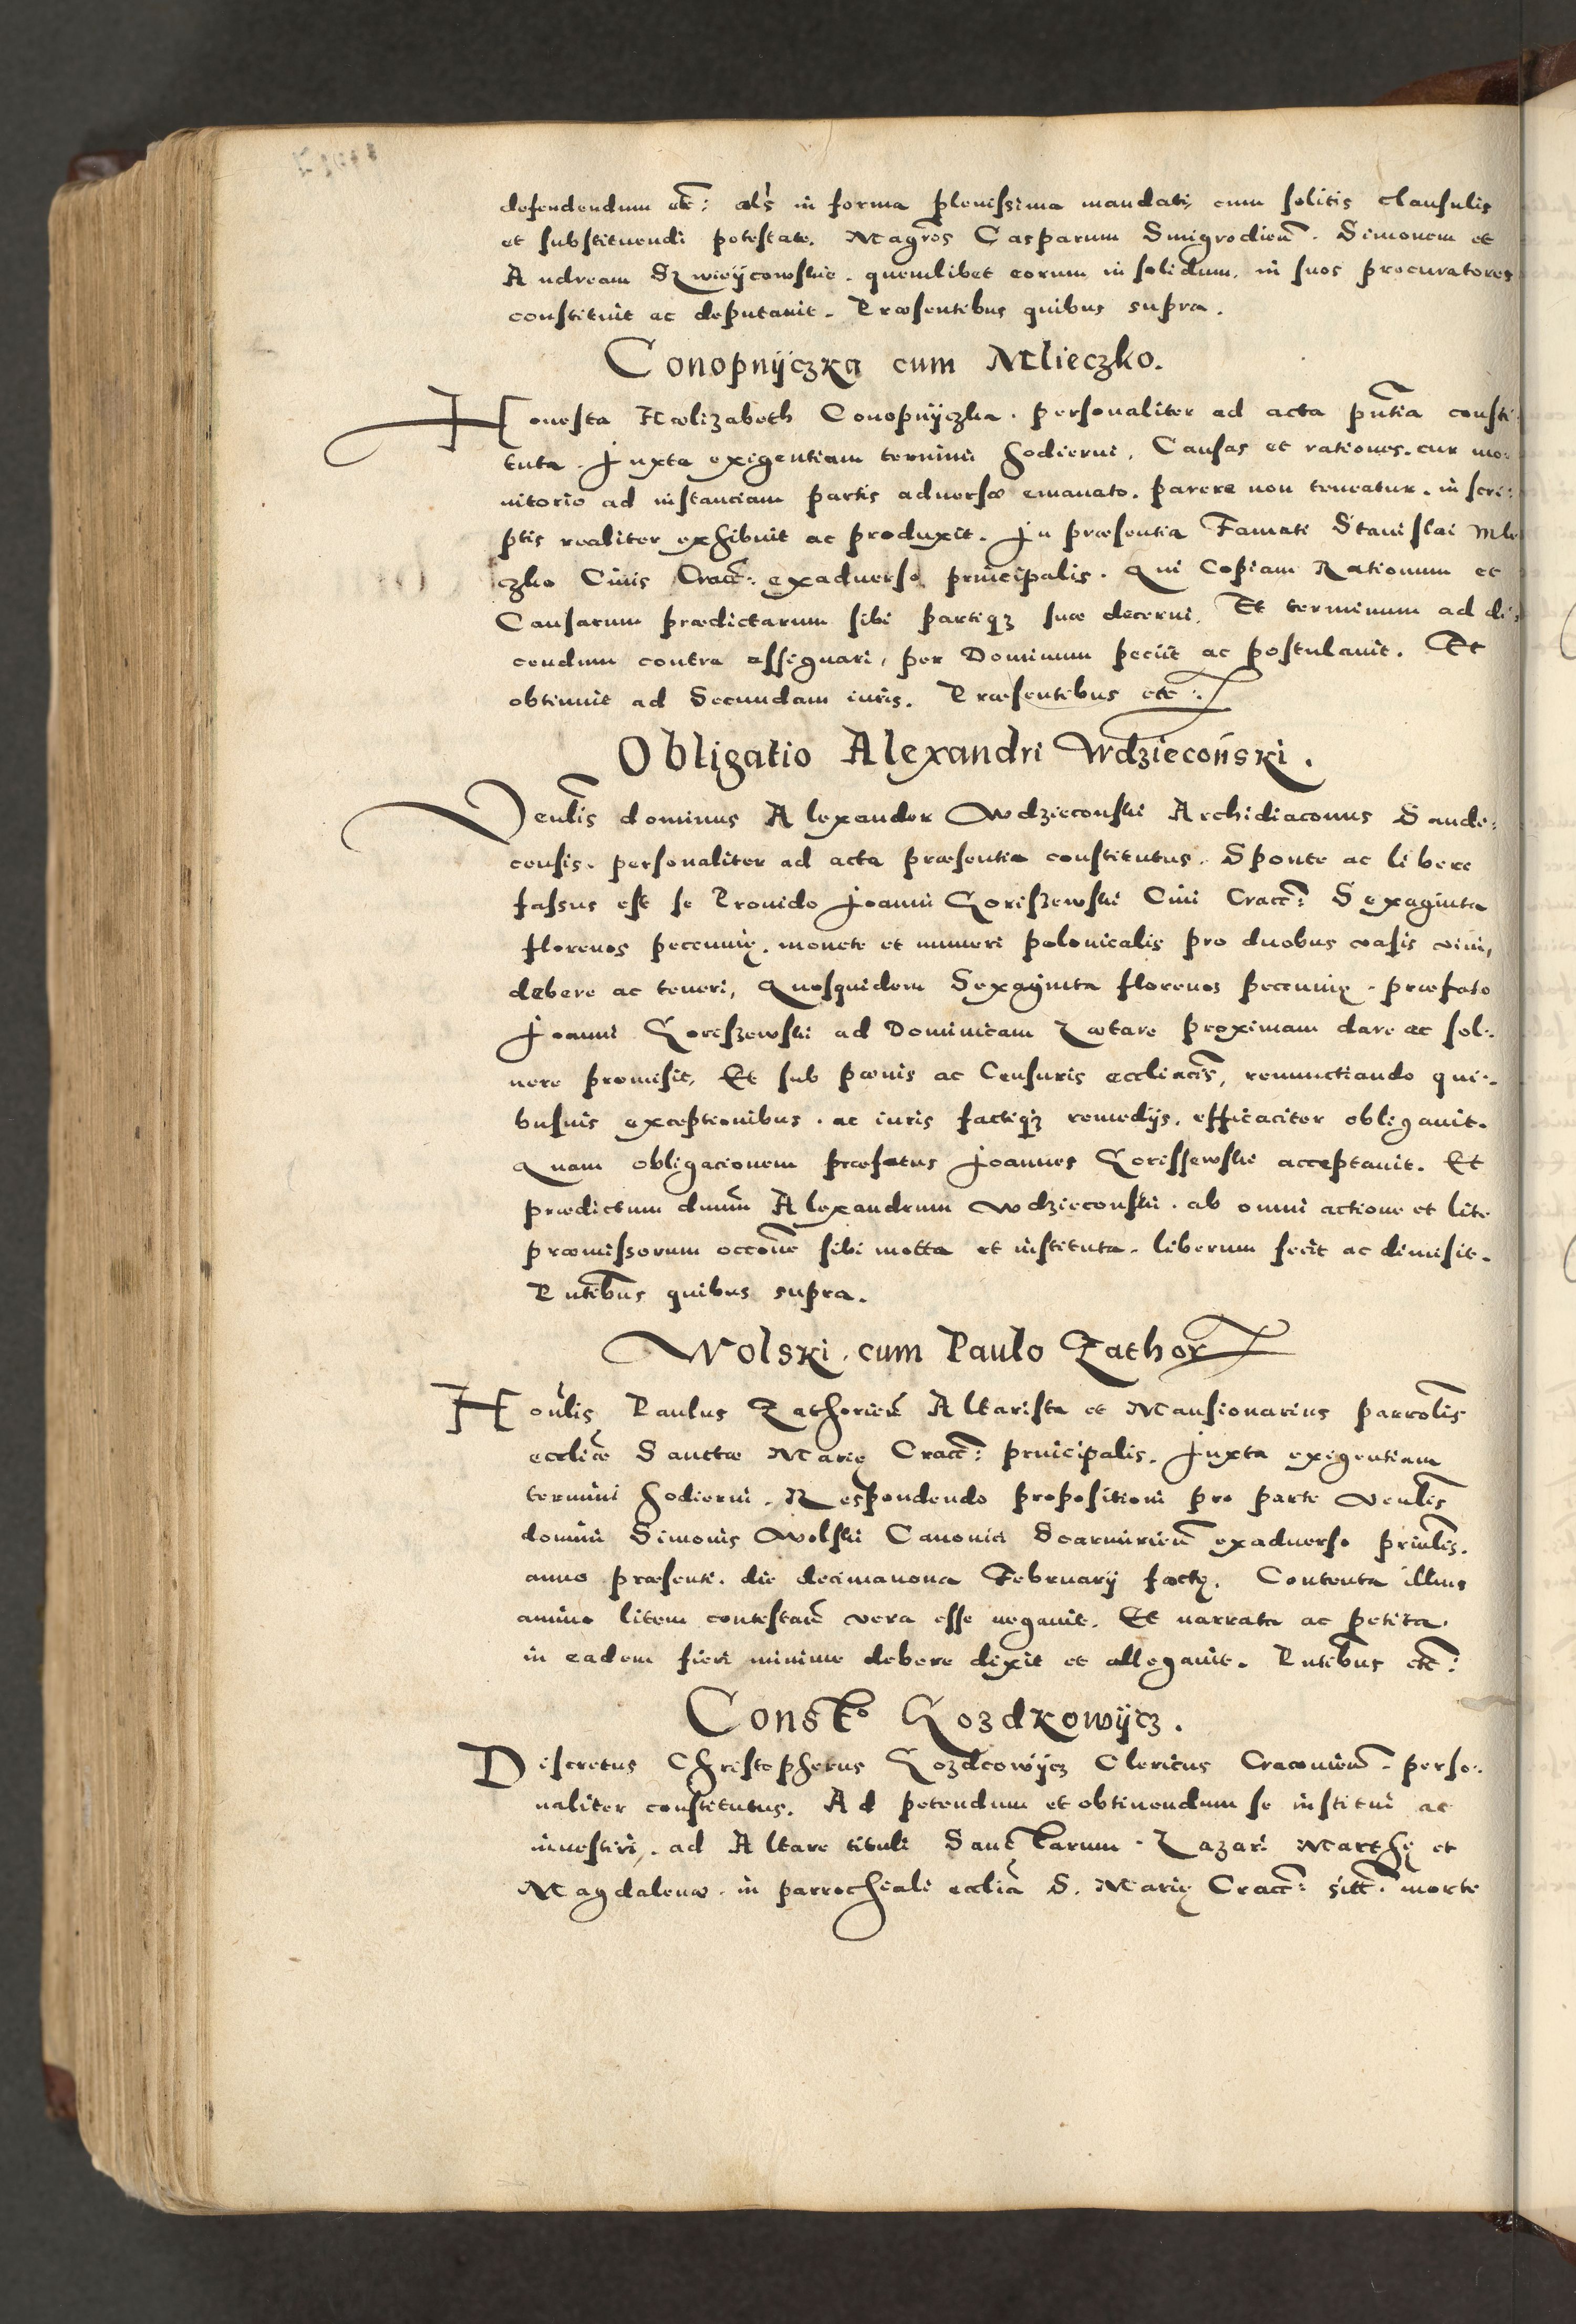 defendendum etc: als in forma plenissima mandati, cum solitis clausulis
et substituendi potestate. Magros Casparum Smigrodien. Simonem et
Andream quemlibet eorum in solidum, in suos procuratores
constituit ac deputavit. Præsentibus quibus supra.
Conopnyczka cum Mlieczko.
Honesta Ælizabeth Conopnyczka. personaliter ad acta pntia consti:
tuta. Juxta exigentiam termini hodierni, Causas et rationes. cur mo:
nitorio ad instanciam partis adversæ emanato. parere non teneatur. in scri:
ptis realiter exhibuit ac produxit. In præsentia Famati Stanislai Mle
czko Civis Cracc: exadverso principalis. Qui Copiam Rationum et
Causarum prædictarum sibi partiqz suæ decerni, Et terminum ad di:
cendum contra assignari, per Dominum peciit ac postulavit. Et
obtinuit ad Secundam iuris. Præsentibus etc:
Obligatio Alexandri Wdziecoński.
Venlis dominus Alexander Wdzieconski Archidiaconus Sande:
censis. personaliter ad acta præsentia constitutus. Sponte ac libere
fassus est se Provido Joanni Koriszewski Civi Cracc: Sexaginta
florenos pecunię. monete et numeri polonicalis pro duobus vasis vini,
debere ac teneri, Quosquidem Sexaginta florenos pecunię. præfato
Joanni Koriszewski ad Dominicam Lætare proximam dare ac sol:
vere promisit, Et sub pænis ac Censuris eccliacis, renunctiando qui:
busvis exceptionibus. ac iuris factiqz remedijs. efficaciter obligavit.
Quam obligacionem præfatus Joannes Korissewski acceptavit. Et
prædictum dnum Alexandrum Wdzieconski. ab omni actione et lite
præmissorum occone sibi motta et instituta. liberum fecit ac dimisit.
Pntibus quibus supra.
Wolski. cum Paulo Zathor
Honlis Paulus Zathorien Altarista et Mansionarius parrolis
eccliæ Sanctæ Marię Cracc: principalis. Juxta exigentiam
termini hodierni. Respondendo propositioni pro parte venlis
domini Simonis Wolski Canonici Scarmirien exadverso prinlis.
anno præsenti. die decimanona February factę. Contenta illius
animo litem contestan vera esse negavit. Et narrata ac petita.
in eadem fieri minime debere dixit et allegavit. Pntibus etc:
Consto Kozdkowycz.
Discretus Christopherus Kozdcowycz Clericus Cracovien. perso:
naliter constitutus. Ad petendum et obtinendum se institui ac
investiri,. ad Altare tituli Sanctarum. Lazari Marthę et
Magdalenæ. in parrocheali ecclia S. Marię Cracc: sitt: morte